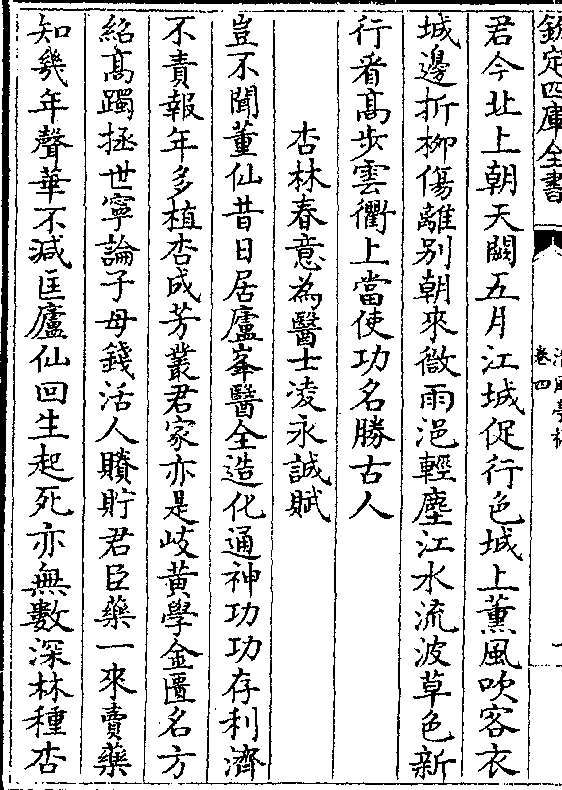 欽定四庫全書
卷四
君今北上朝天闕五月江城促行色城上薰風吹客衣
城邊折柳傷離別朝來微雨浥輕塵江水流波草色新
行看高步雲衢上當使功名勝古人
杏林春意為醫士凌永誠賦
豈不聞董仙昔日居廬峯醫全造化通神功功存利濟
不責報年多植杏成芳叢君家亦是岐黃學金匱名方
紹髙躅拯世寧論子母錢活人賸貯君臣藥一來賣藥
知幾年聲華不減匡廬仙回生起死亦無數深林種杏